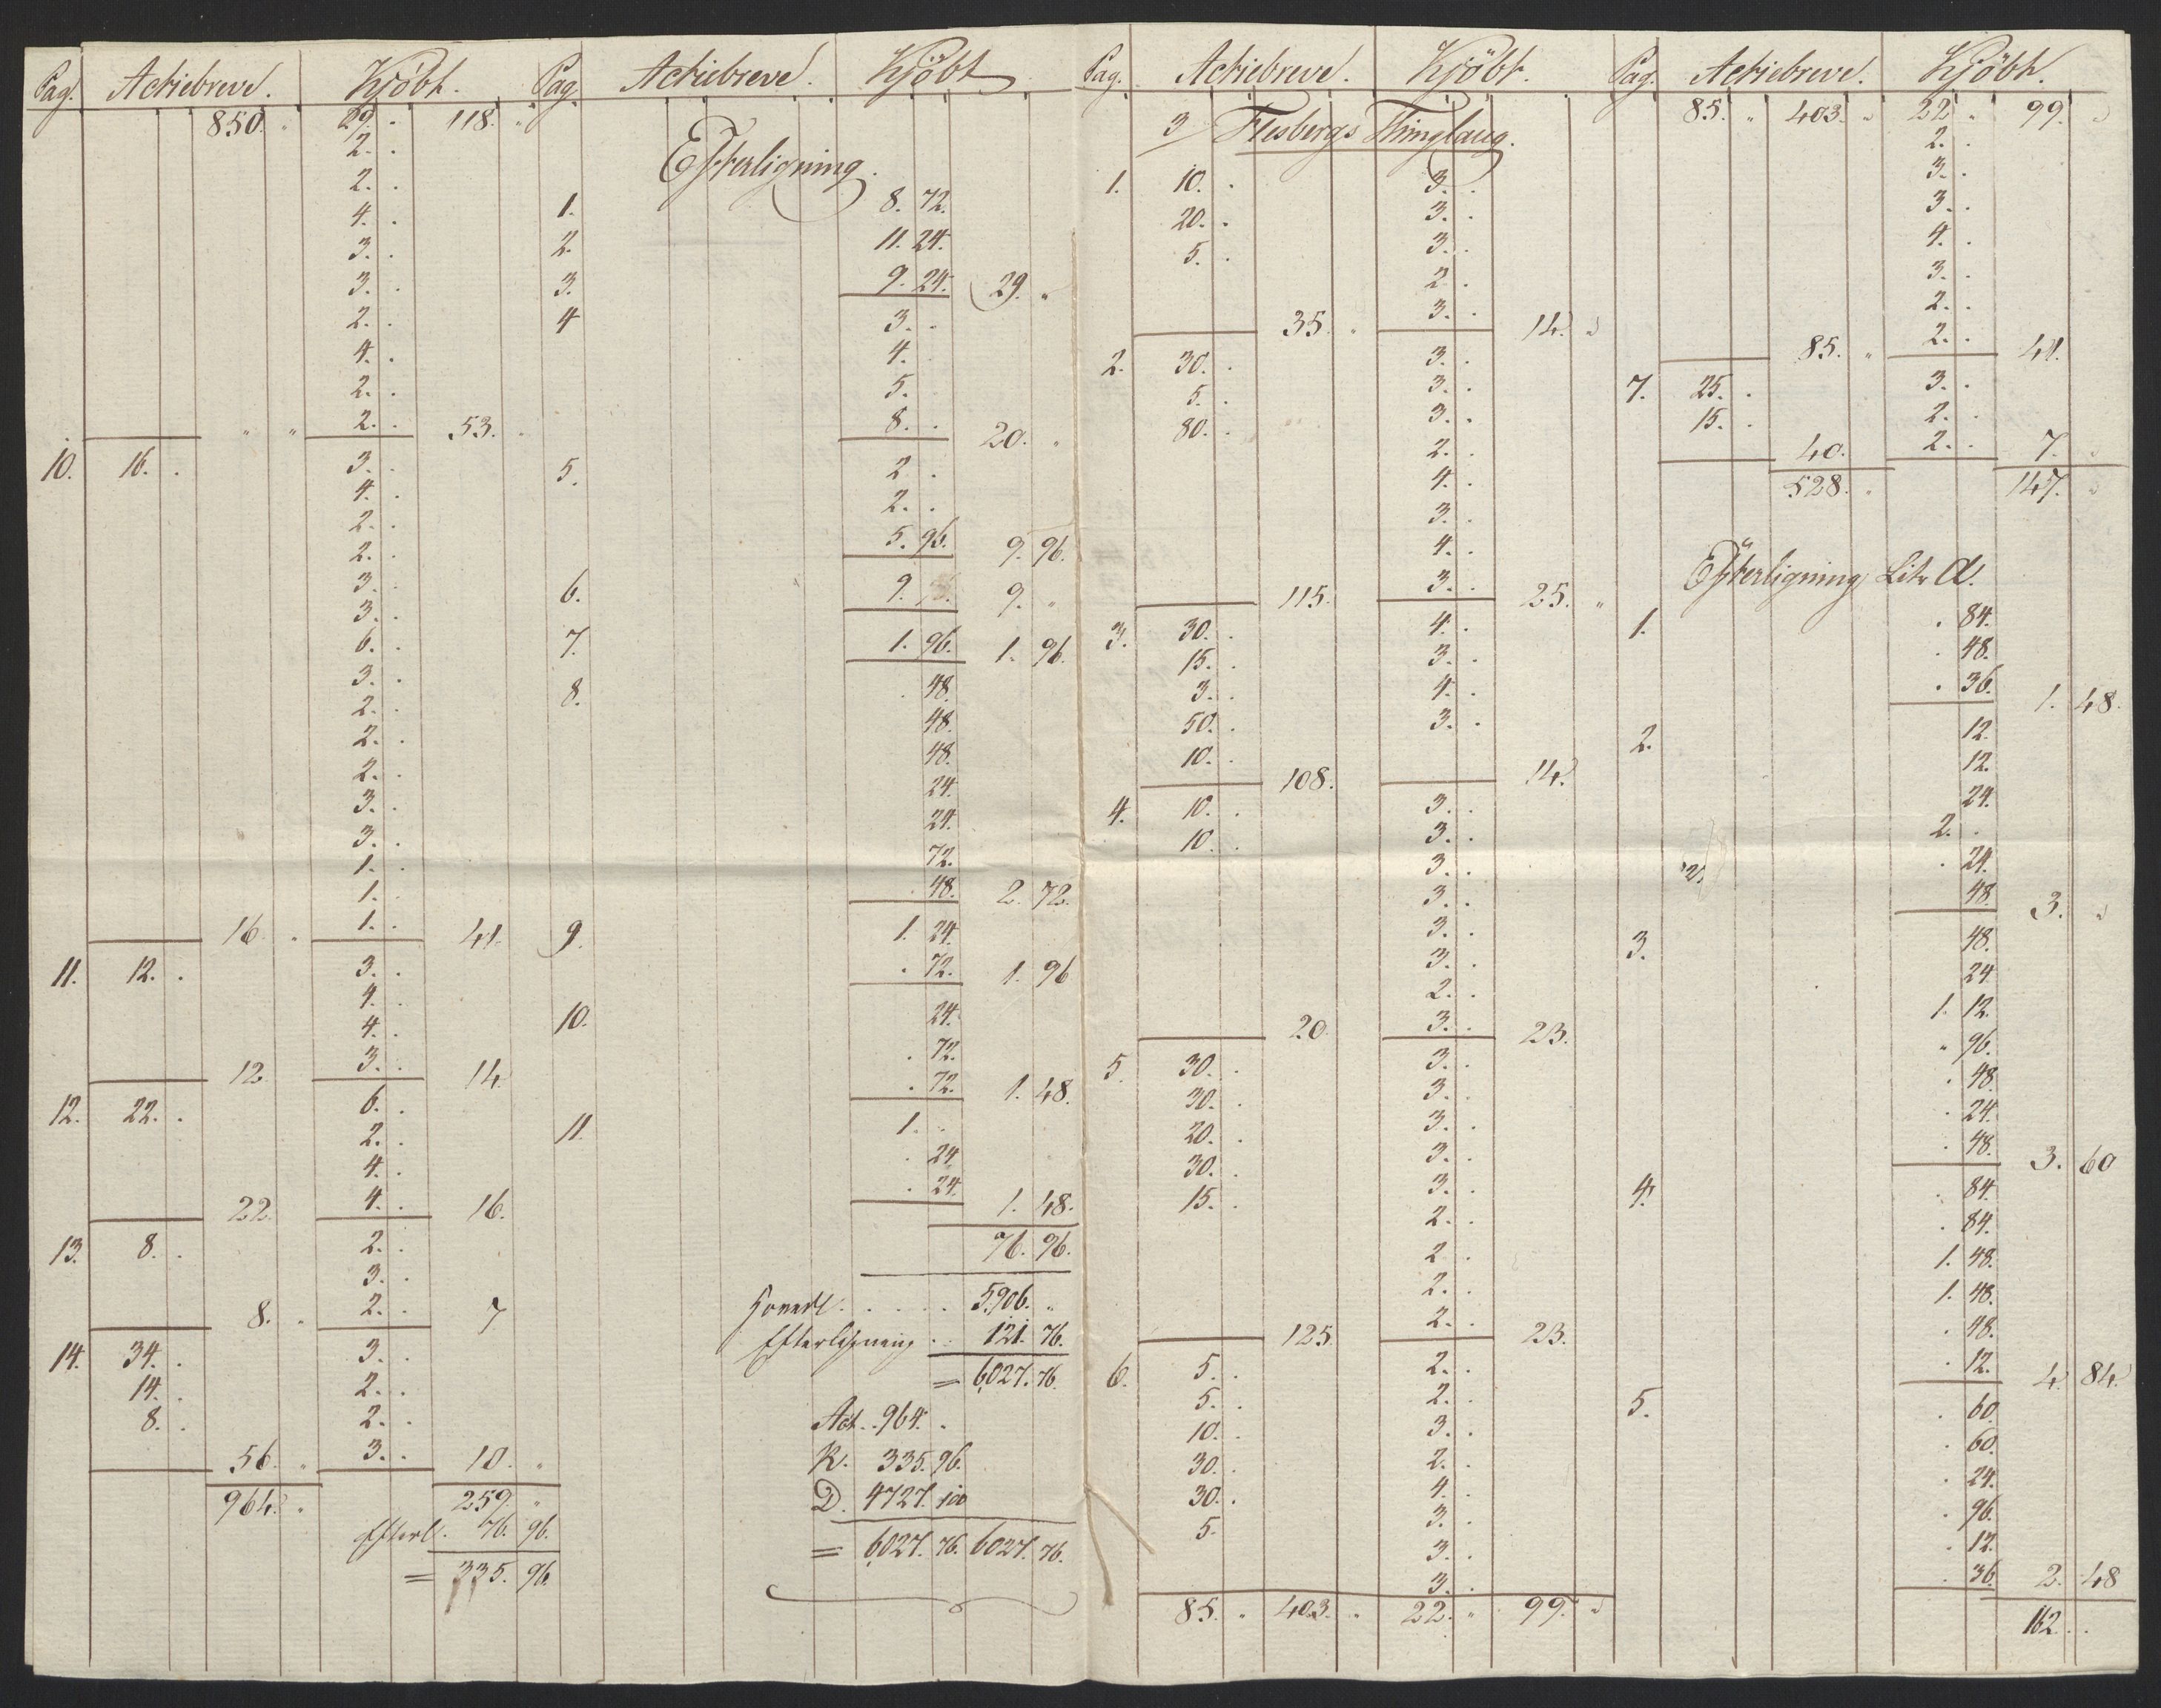 Pag. Actiebreve. Kjöbt.
850. " 29. . 118. "
2. .
2. .
4. .
3. .
3. .
2. .
4. .
2. .
" " 2. . 53. .
10. 16. . 3. .
4. .
2. .
2. .
3. .
3. .
6. .
3. .
2. .
2. .
2. .
3. .
3. .
1. .
1. .
16. . 1. . 41.
11. 12. . 3. .
4. .
4. .
12. 3. . 14.
12. 22. . 6. .
2. .
4. .
22. 4. . 16.
13. 8. . 2. .
3. .
8. . 2. . 7
14. 34. . 3. .
14. . 2. .
8. . 2. .
56. " 3. . 10. "
964. " 259. "
Efterl. 76. 96.
= 335. 96.
Pag. Actiebreve. Kjöbt
Efterligning.
1. 8. 72.
2. 11. 24.
3. 9. 24. 29. "
4 3. .
4.
5.
8. . 20. "
5. 2 .
2. .
5. 96. 9. 96.
6. 9. 9. "
7. 1. 96. 1. 96.
8. . 48.
48.
48.
24.
24.
72.
. 48. 2. 72.
9. 1. 24.
. 72. 1. 96
10. 24.
. 72.
. 72. 1. 48.
11. 1. .
. 24
. 24. 1. 48.
76. 96.
5906. "
Efterligning . . 121. 76.
= 6027. 76.
Act. . 964. .
K. 335. 96.
D. 4727. 100
= 6027. 76. 6027. 76.
Pag. Actiebreve. Kjöbt.
3 Flesbergs Thinglaug.
1. 10. . 3. .
20. . 3. .
5. . 3. .
2 .
35. " 3. . 14. "
2. 30. . 3. .
5. . 3. .
80. . 3. .
2. .
4. .
3. .
4. .
115. 3. . 25. "
3. 30. . 4. .
15. . 3. .
3. . 4. .
50. . 3. .
10. .
108. 14.
4. 10. . 3. .
10. . 3. .
3. .
3. .
3. .
3. .
2. .
20. 3. . 23.
5. 30. . 3. .
30. . 3. .
20. . 3. .
30. . 3. .
15. . 3. .
2. .
2 .
2. .
125. 2. . 23.
6. 5. . 2. .
5. . 2. .
10. . 3. .
30. . 2. .
30. . 4. .
5. 3. .
3. .
3. .
85. " 403. " 22. " 99. "
Pag. Actiebreve. Kjöbt.
85. " 403. " 22 " 99. "
2. .
3. .
3. .
4. .
3. .
2. .
85. " 2. . 41.
7. 25. . 3. .
15. . 2. .
40. 2. . 7. "
528. " 147. "
Efterligning Litr A.
1. . 84.
. 48.
. 36. 1. 48.
2. 12.
12.
24.
2. .
. 24.
48. 3. "
3. 48.
24
1. 12.
" 96.
. 48
. 24.
. 48. 3. 60
4. . 84.
. 84.
1. 48.
1. 48.
. 48.
. 12. 4. 84.
5. . 60.
. 60.
. 24.
. 96.
. 12.
. 36. 2. 48
162. .